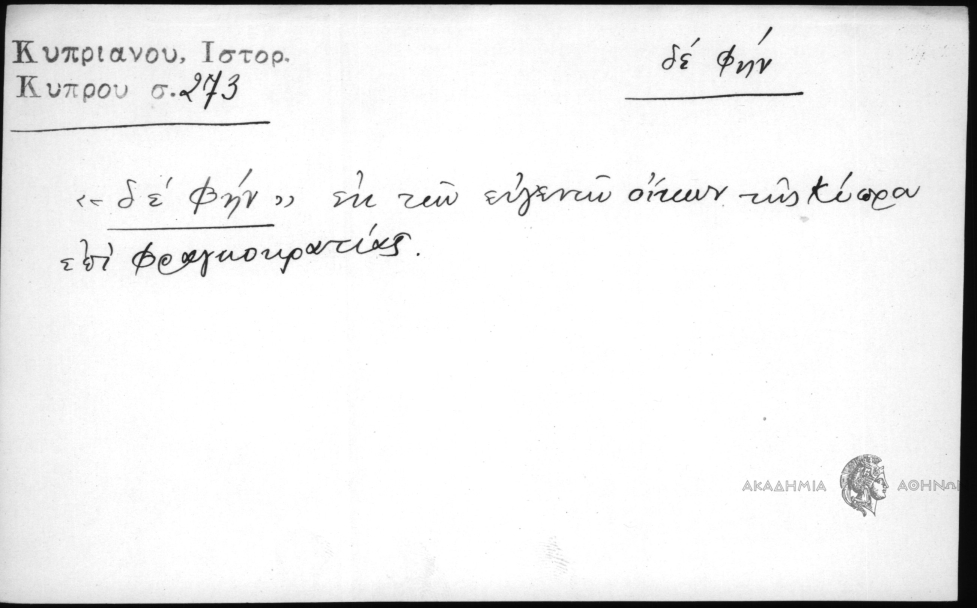 Κυπριανου, Ιστορ.
Κυπρου σ.273
δέ Φήν
«δέ Φήν» ἐκ τῶν εὐγενῶν οἴκων τῆς Κύπρου
ἐπὶ Φραγκοκρατίας.
ΑΚΑΔΗΜΙΑ ΑΘΗΝΩΝ